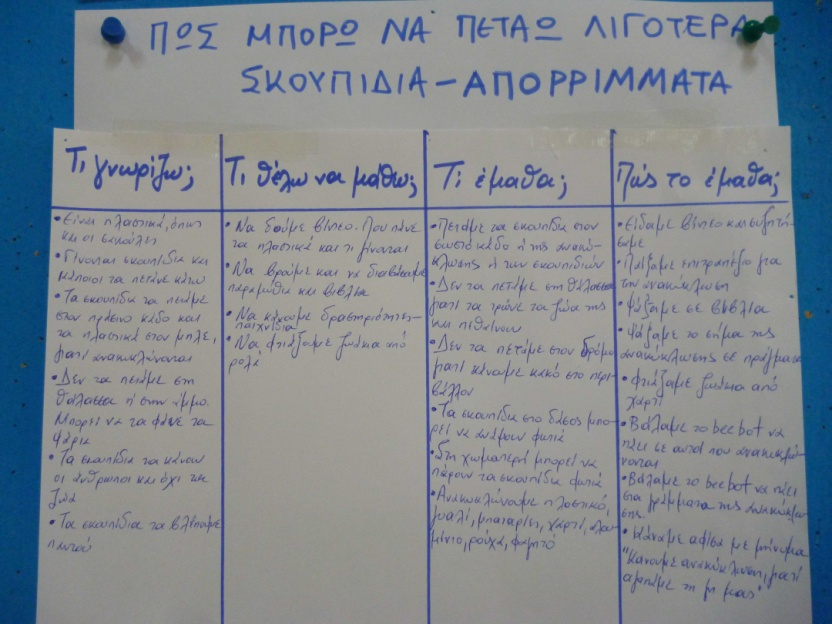 ΠΩΣ ΜΠΟΡΩ ΝΑ ΠΕΤΑΩ ΛΙΓΟΤΕΡΑ
ΣΚΟΥΠΙΔΙΑ-ΑΠΟΡΡΙΜΜΑΤΑ
Τι γνωρίζω;
• Είναι πλαστικά, όπως
και οι σακούλες
• Γίνονται σκουπίδια και
κάποιοι τα πετάνε κάτω
• Τα σκουπίδια τα πετάμε
στον πράσινο κάδο και
τα πλαστικά στον μπλε,
γιατί ανακυκλώνονται
• Δεν τα πετάμε στη
θάλασσα ή στην άμμο.
Μπορεί να τα φάνε τα
ψάρια
• Τα σκουπίδια τα κάνουν
οι άνθρωποι και όχι τα
ζώα
• Τα σκουπίδια τα βλέπουμε
παντού
Τι θέλω να μάθω;
• Να δούμε βίντεο. Που πάνε
τα πλαστικά και τι γίνονται
• Να βρούμε και να διαβάσουμε
παραμύθια και βιβλία
• Να κάνουμε δραστηριότητες-
παιχνίδια
• Να φτιάξουμε ζωάκια από
ρολά
Τι έμαθα;
• Πετάμε τα σκουπίδια στον
σωστό κάδο ή της ανακύ-
κλωσης ή των σκουπιδιών
• Δεν τα πετάμε στη θάλασσα
γιατί τα τρώνε τα ζώα της
και πεθαίνουν
• Δεν τα πετάμε στον δρόμο
γιατί κάνουμε κακό στο περι-
βάλλον
• Τα σκουπίδια στο δάσος μπο-
ρεί να ανάψουν φωτιά
• Στη χωματερή μπορεί να
πάρουν τα σκουπίδια φωτιά
• Ανακυκλώνουμε πλαστικό,
γυαλί, μπαταρίες, χαρτί, αλου-
μίνιο, ρούχα, φαγητό
Πώς το έμαθα;
• Είδαμε βίντεο και συζητή-
σαμε
• Παίξαμε επιτραπέζιο για
την ανακύκλωση
• Ψάξαμε σε βιβλία
• Ψάξαμε το σήμα της
ανακύκλωσης σε πράγματα
• Φτιάξαμε ζωάκια από
χαρτί
• Βάλαμε το bee bot να
πάει σε αυτά που ανακυκλώ-
νονται
• Βάλαμε το bee bot να πάει
στα γράμματα της ανακύκλω-
σης
• Κάναμε αφίσα με μήνυμα
"Κάνουμε ανακύκλωση, γιατί
αγαπάμε τη γη μας"